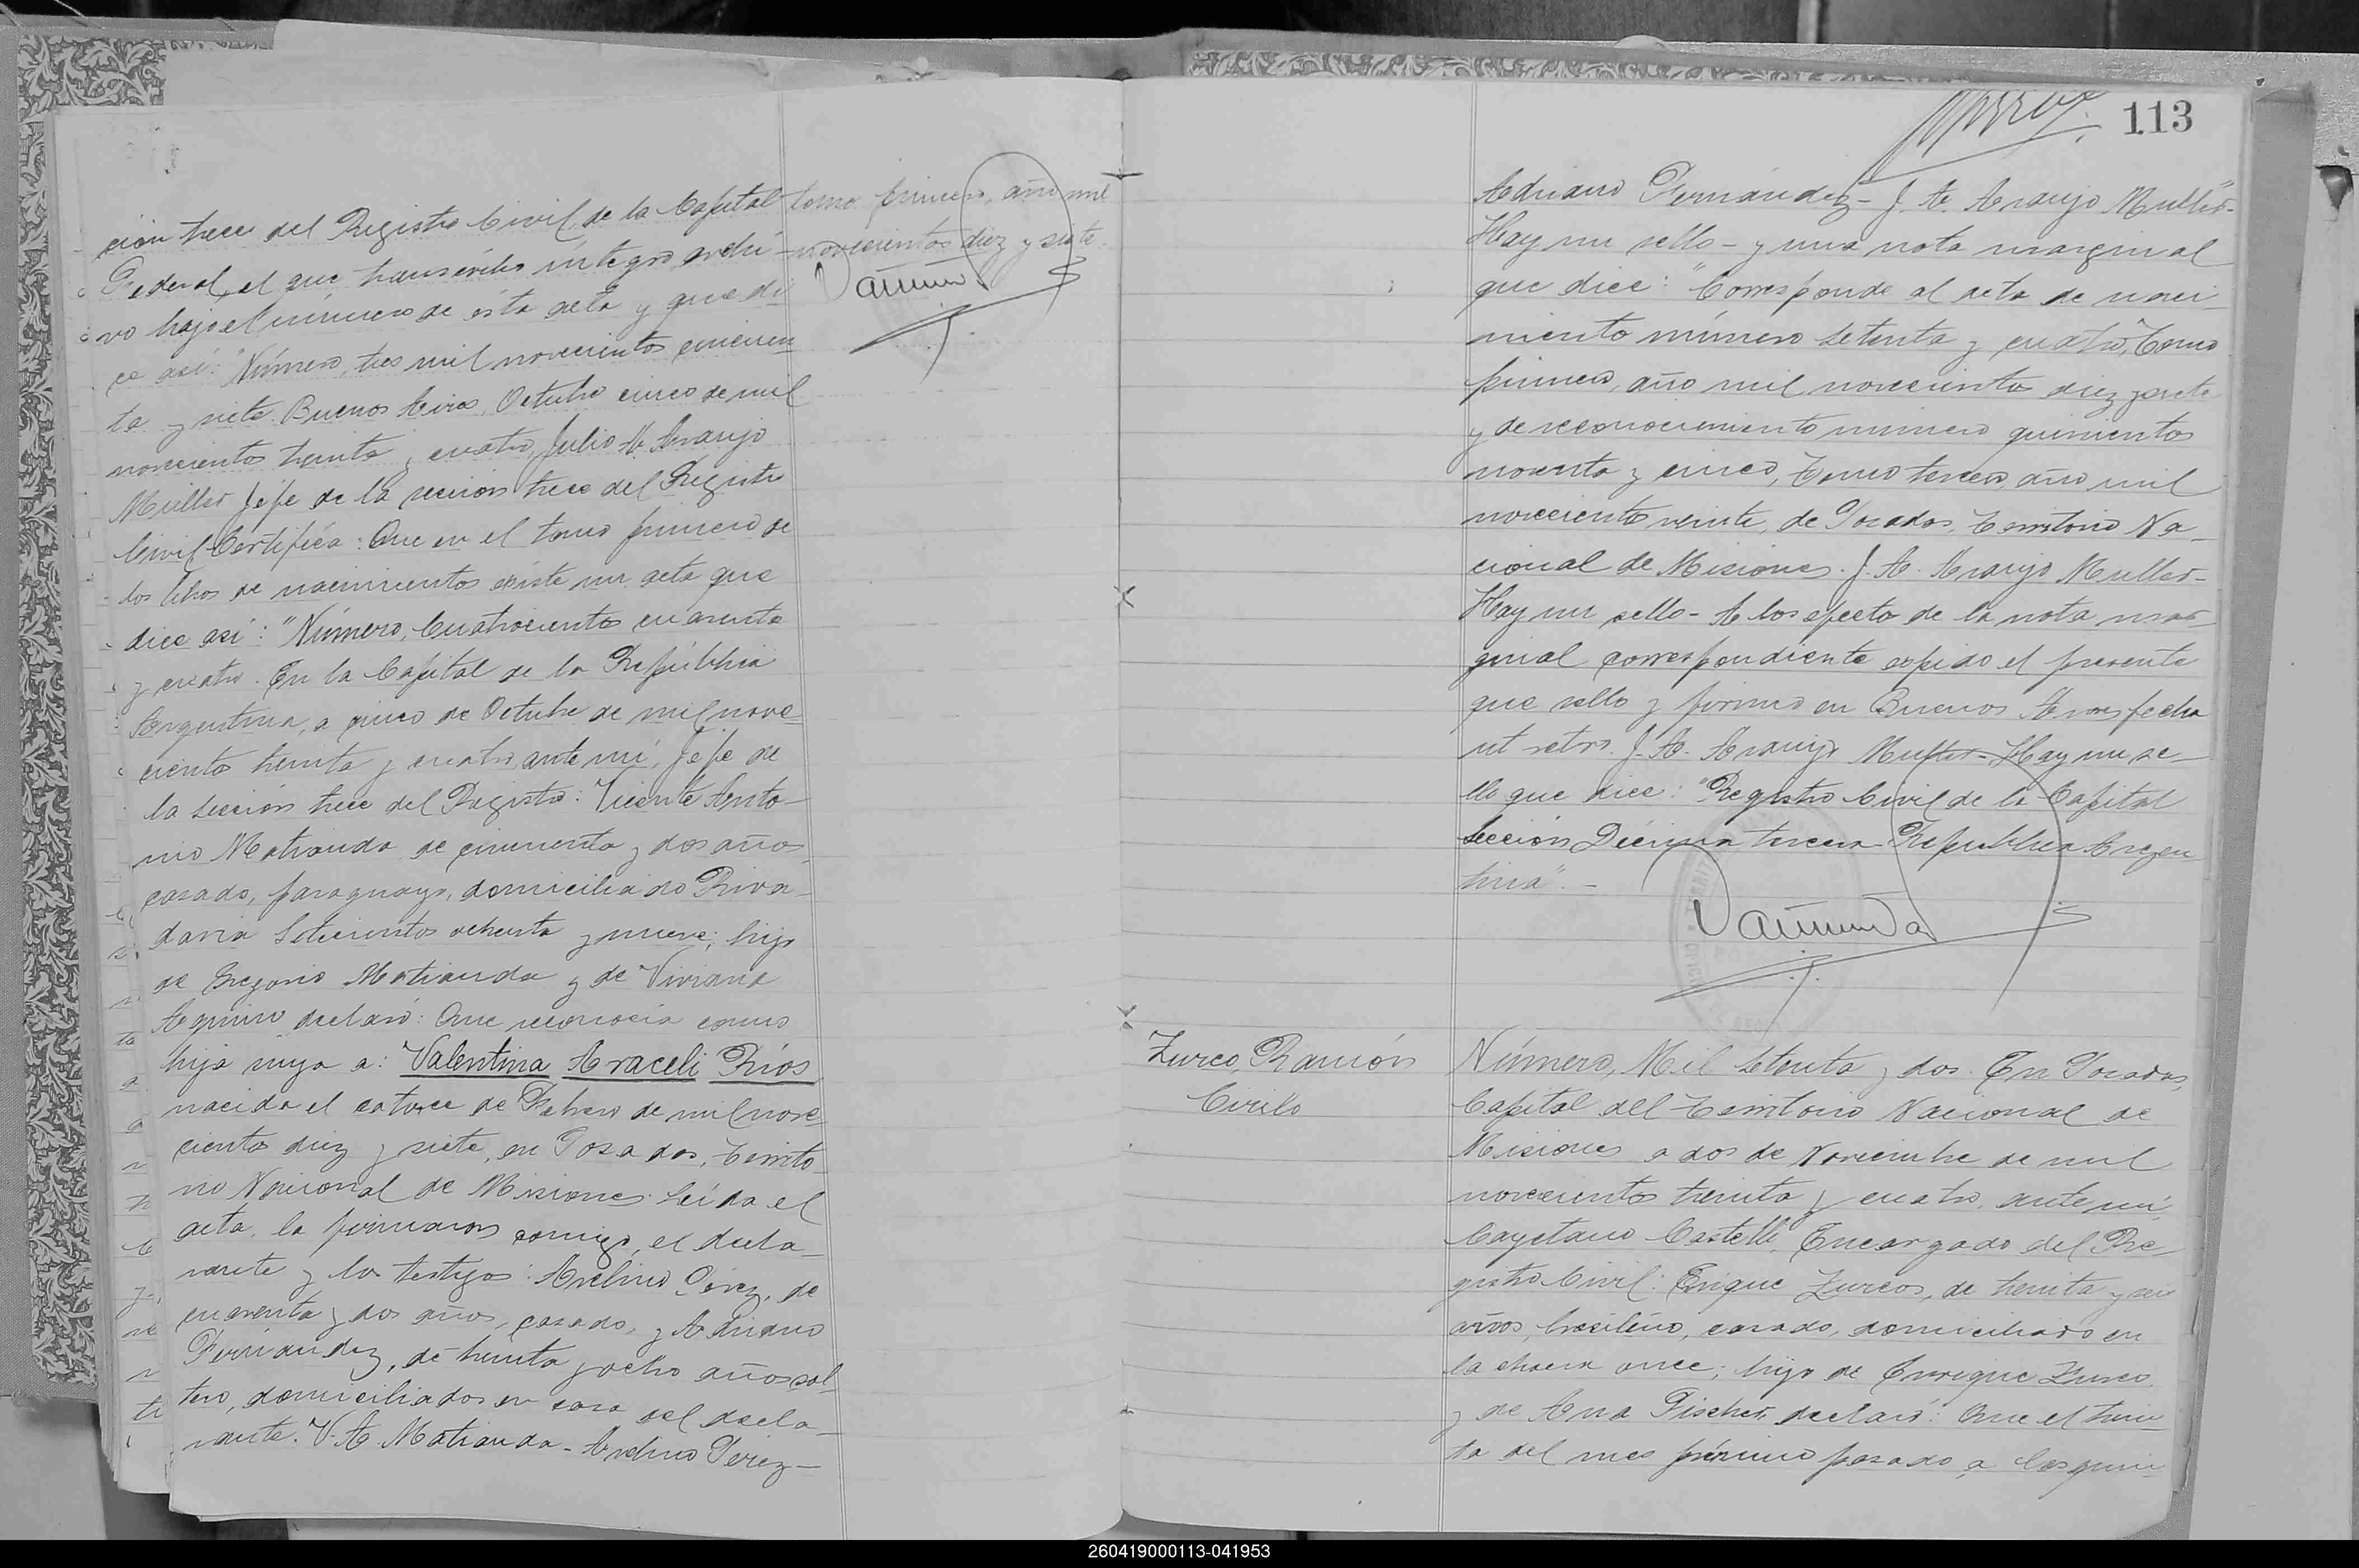 ción trece del Registro Civil de la Capital
Federal, el que transcribo íntegro, archi-
vo bajo el número de ésta acta y que di
ce asi: "Número, tres mil novecientos cincuen
ta y siete. Buenos Aires, Octubre cinco de mil
novecientos treinta y cuatro, Julio A. Araujo
Muller Jefe de la sección trece del Registro
Civil Certifica: Que en el tomo primero de
los libros de nacimientos existe un acta que
dice asi: "Número, Cuatrocientos cuarenta
y cuatro. En la Capital de la República
Argentina, a cinco de Octubre de mil nove-
cientos treinta y cuatro, ante mí, Jefe de
la Sección trece del Registro: Vicente Anto-
nio Matiauda de cincuenta y dos años,
casado, paraguayo, domiciliado Riva-
davia Setecientos ochenta y nueve; hijo
de Gregorio Matiauda y de Viviana
Aquino declaró: Que reconocía como
hija suya a: Valentina Araceli Ríos
nacida el catorce de Febrero de mil nove
cientos diez y siete, en Posadas, Territo
rio Nacional de Misiones. Leída el
acta, la firmaron conmigo, el decla-
rante y los testigos: Avelino Pérez, de
cuarenta y dos años, casado, y Adriano
Fernández, de treinta y ocho años sol-
tero, domiciliados en casa del decla-
rante. V. A. Matiauda - Avelino Pérez -
tomo primero, año mil
novecientos diez y siete.
113
Adriano Fernández - J. A. Araujo Muller-
Hay un sello - y una nota marginal
que dice: "Corresponde al acta de naci-
miento número setenta y cuatro, Tomo
primero, año mil novecientos diez y siete
y de reconocimiento número quinientos
noventa y cinco, Tomo tercero, año mil
novecientos veinte, de Posadas, Territorio Na-
cional de Misiones. J. A. Araujo Muller-
Hay un sello - A los efectos de la nota mar-
ginal correspondiente expido el presente
que sello y firmo en Buenos Aires fecha
ut retro. J. A. Araujo Muller - Hay un se-
llo que dice: "Registro Civil de la Capital
Sección Décima tercera - República Argen
tina". -
Zurco, Ramón
Cirilo
Número, Mil setenta y dos. En Posadas,
Capital del Territorio Nacional de
Misiones a dos de Noviembre de mil
novecientos treinta y cuatro, ante mí,
Cayetano Castelli, Encargado del Re-
gistro Civil: Enrique Zurcos, de treinta y seis
años, brasileño, casado, domiciliado en
la chacra once; hijo de Enrique Zurco
y de Ana Fischer, declaró: Que el trein-
ta del mes próximo pasado, a las quin-
260419000113-041953